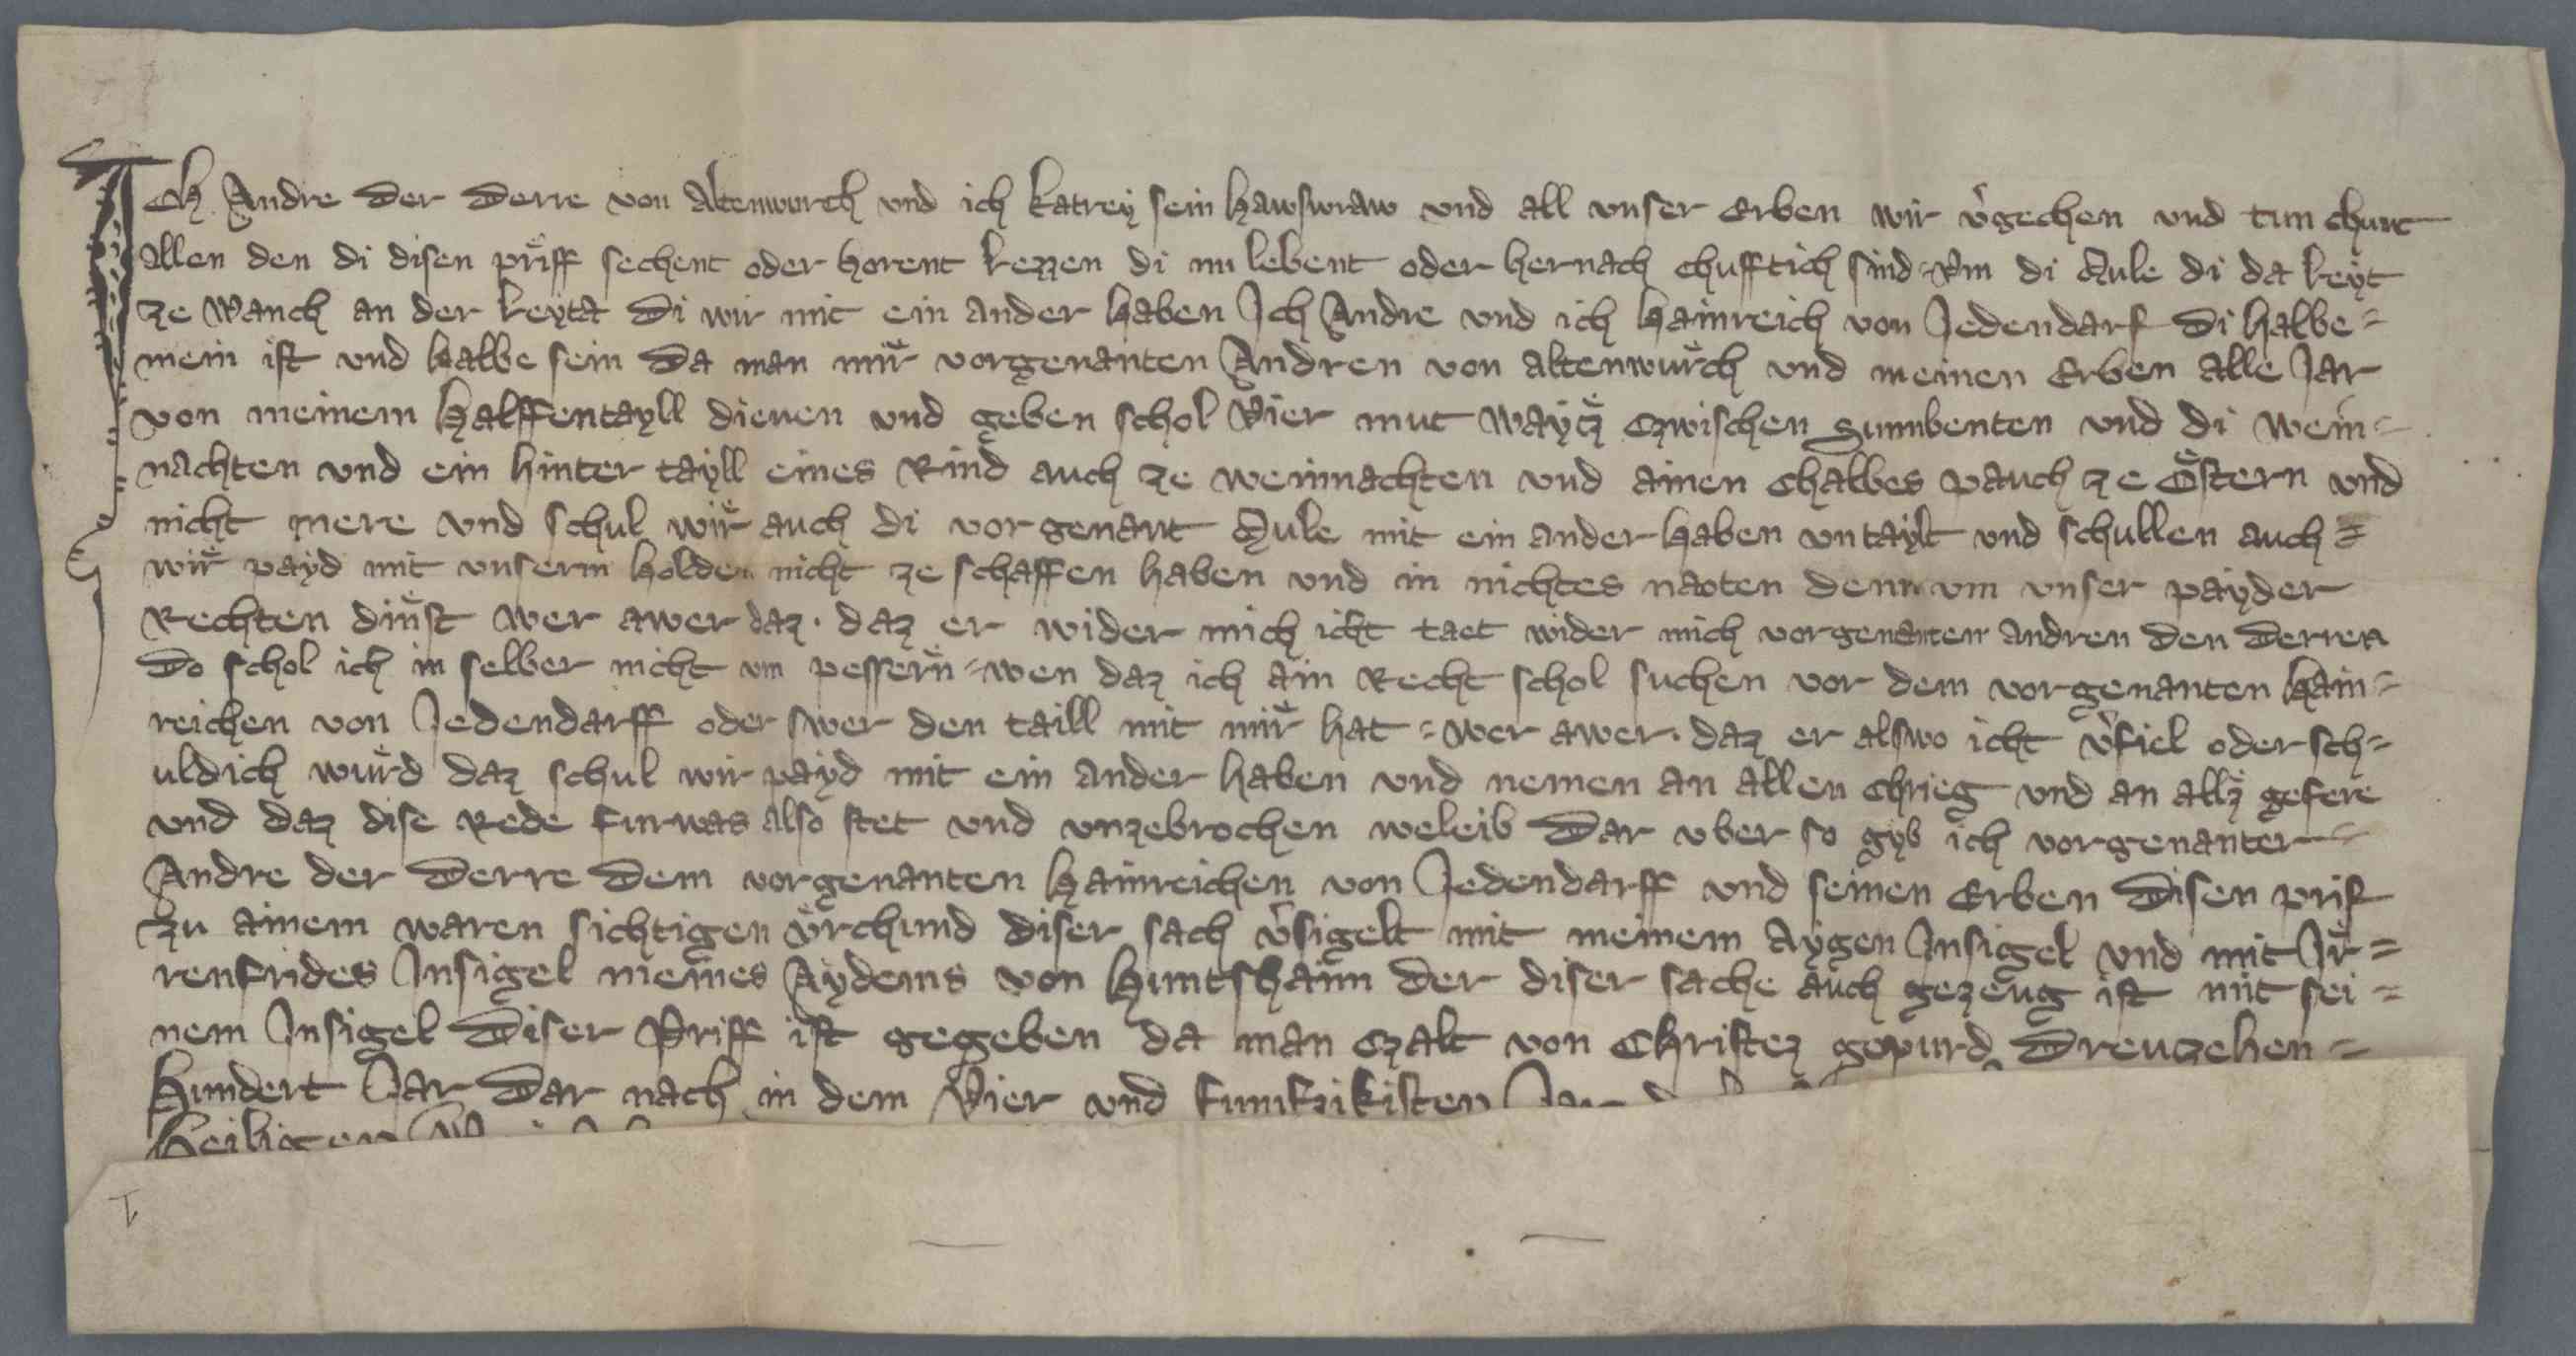 Ich Andre der Derre von Altenwurch vnd ich katrey sein hawswraw vnd all vnser Erben wir v̾gechen vnd tun chunt
allen den di disen priff sechent oder horent lezzen di nu lebent oder hernach chufftich sind · Vm di Mule di da leyt
ze Wanch an der leyta Di wir mit ein ander haben Ich Andre vnd ich hainreich von Jedendarf Di halbe =
mein ist vnd halbe sein Da man mir vorgenanten Andren von altenwurch vnd meinen Erben alle Jar
von meinem halffentayll dienen vnd geben schol Vier mut waycz czwischen Sunnbenten vnd di wein =
nachten vnd ein hinter tayll eines Rind auch ze weinnachten vnd ainen chalbes pauch ze Ostern vnd
nicht mere vnd schul wir auch di vorgenant Mule mit ein ander haben vntaylt vnd schullen auch =
wir payd mit vnserm holden nicht ze schaffen haben vnd in nichtes naoten denn vm vnser payder
Rechten dinst wer awer daz · daz er wider mich icht taet wider mich vorgenanten andren den Derren
Do schol ich in selber nicht vm pessern = wen daz ich ain Recht schol suchen vor dem vorgenanten hain =
reichen von Jedendarff oder swer den taill mit mir hat = wer awer · daz er alswo icht v̾fiel oder sch =
uldich wurd daz schul wir payd mit ein ander haben vnd nemen an allen chrieg vnd an allz gefere
vnd daz dise Rede furwas also stet vnd vnzebrochen weleib Dar vber so gyb ich vorgenanter =
Andre der Derre Dem vorgenanten hainreichen von Jedendarff vnd seinen Erben Disen prif
zu ainem waren sichtigen vrchund diser sach v̾sigelt mit meinem Aygen Insigel vnd mit Ir =
renfrides Insigel meines Aydems von huntshaim der diser sache auch gezeug ist mit sei =
nem Insigel Diser Priff ist gegeben da man czalt von Christez gepurd Dreuzehen =
hundert Jar Dar nach in dem Vier vnd funfzikisten Jar
heiligen